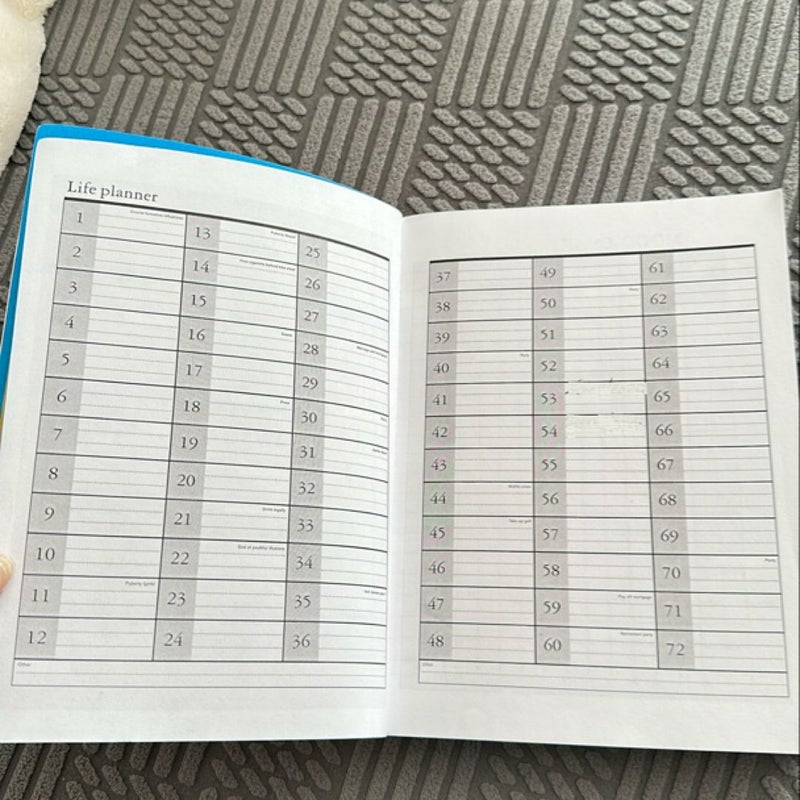 Life planner
1 Crucial formative influences
2
3
4
5
6
7
8
9
10
11 Puberty (girls)
12
13 Puberty (boys)
14
15
16
17
18
19
20
21 Drink legally
22 End of youthful illusions
23
24
25
26
27
28
29
30
31
32
33
34
35
36
Other
37
38
39
40 Party
41
42
43
44 Midlife crisis
45 Take up golf
46
47
48
49
50 Party
51
52
53
54
55
56
57
58
59 Pay off mortgage
60 Retirement party
61
62
63
64
65
66
67
68
69
70 Party
71
72
Other